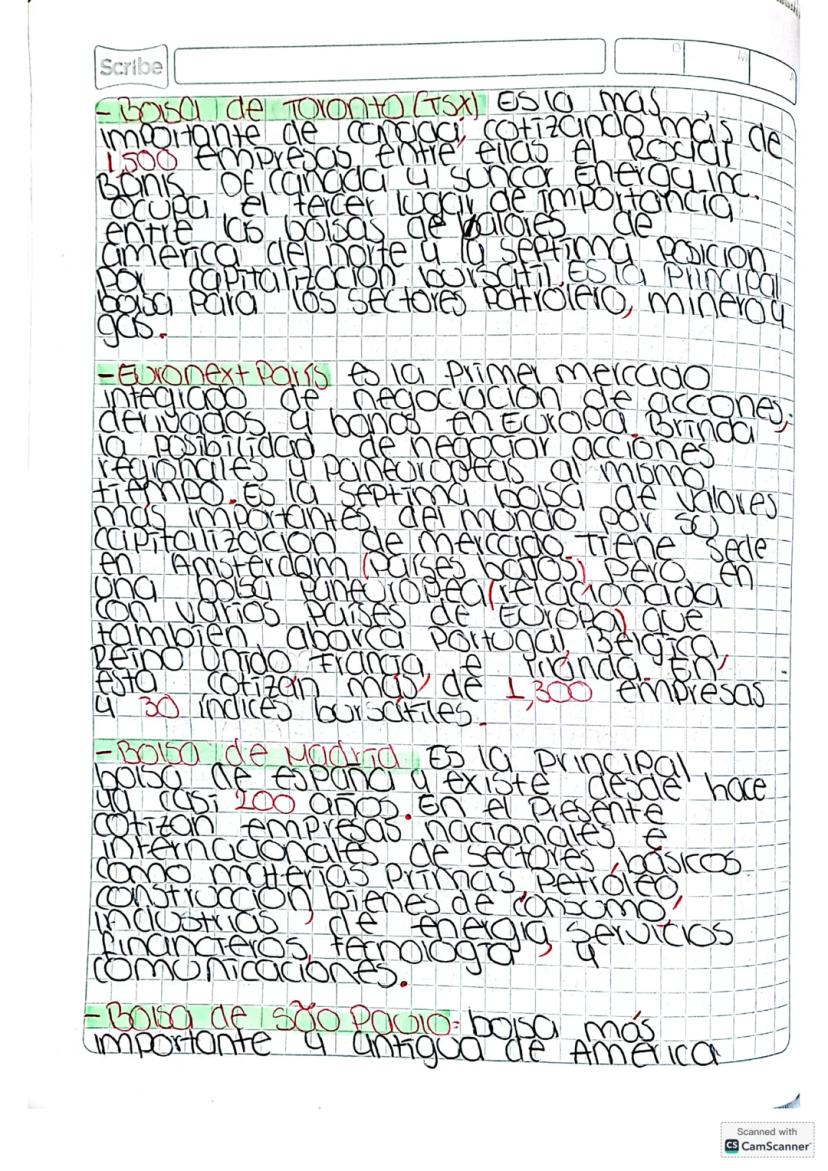 Scribe
-Bolsa de Toronto (TSX) Es la más
importante de canada, cotizando más de
1,500 empresas entre ellas el Rogial
Bonk Of Canada y suncor Energy inc.
Ocupa el tercer lugar de importancia
entre las bolsas de valores de
america del norte y la septima posicion
por capitalizacion bursatil. Es la principal
bolsa para los sectores patrolero, minero y
gas.
-Euronext París es la primer mercado
integrado de negociacion de accones,
derivados y bonos en Europa. Brinda
la posibilidad de negociar acciones
regionales y paneuropeas al mismo
tiempo. Es la septima bolsa de valores
más importantes del mundo por su
capitalizacion de mercado. Tiene sede
en Amsterdam (países bajos) pero en
una bolsa paneuropea (relacionada
con varios países de Europa) que
tambien abarca Portugal, Bélgica,
Reino Unido, Francia e Irlanda. En
esta cotizan más de 1,300 empresas
y 30 índices bursátiles.
-Bolsa de Madrid Es la principal
bolsa de españa y existe desde hace
ya casi 200 años. En el presente
cotizan empresas nacionales e
internacionales de sectores básicos
como materias primas, petróleo,
construccion, bienes de consumo,
industrias de energia, servicios
financieros, tecnologia y
comunicaciones.
-Bolsa de São Paulo: bolsa más
importante y antigua de América
Scanned with
CS CamScanner